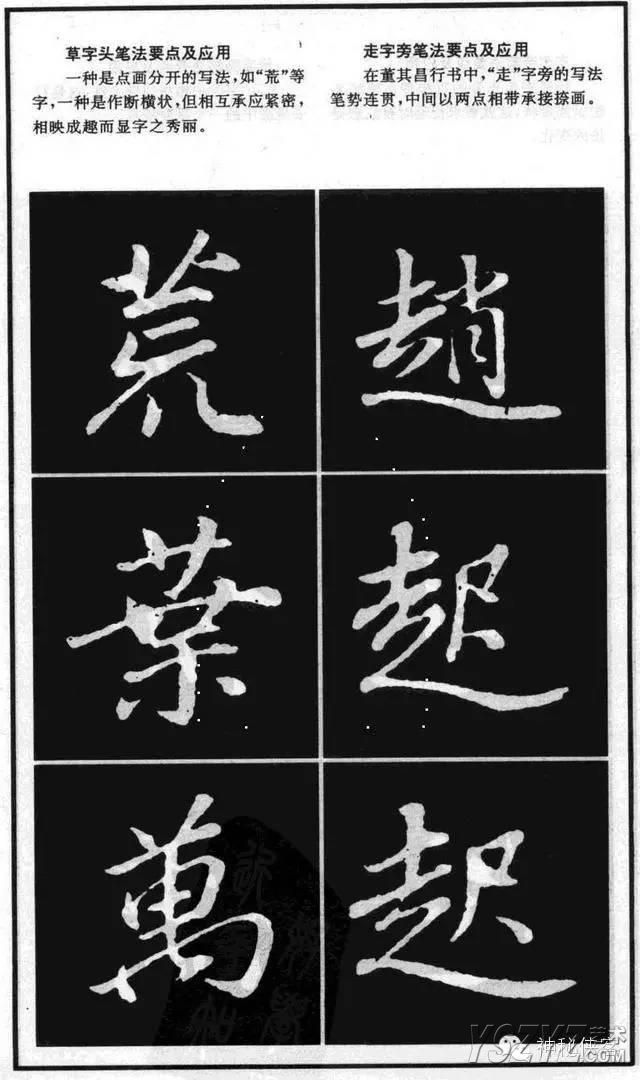 草字头笔法要点及应用
一种是点画分开的写法，如“荒”等
字，一种是作断横状，但相互承应紧密，
相映成趣而显字之秀丽。
走字旁笔法要点及应用
在董其昌行书中，“走”字旁的写法
笔势连贯，中间以两点相带承接捺画。
荒
趙
葉
起
萬
起